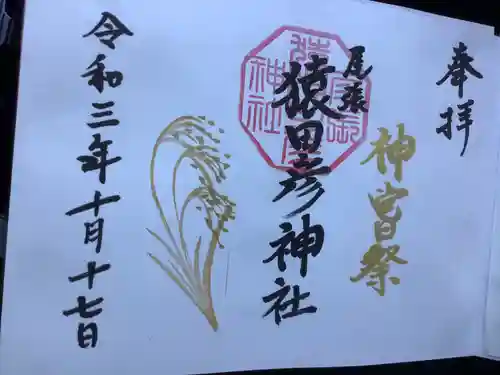 奉拝
神嘗祭
尾張
猿田彦神社
令和三年十月十七日